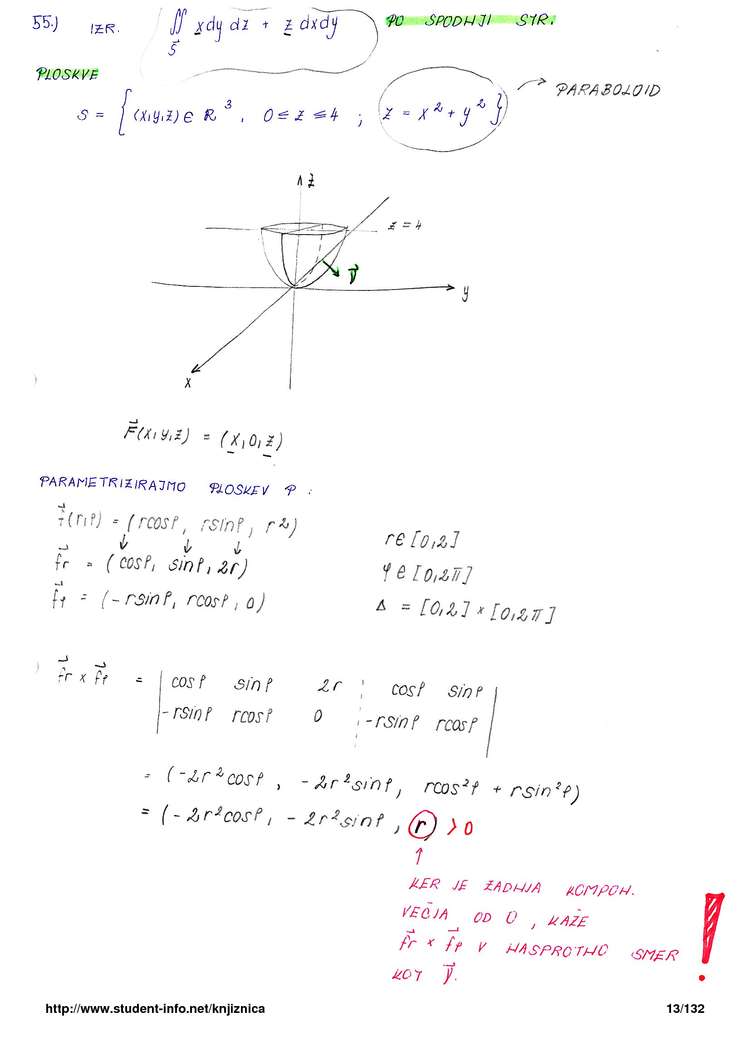 55.) IZR. ∬_S⃗ x dy dz + z dxdy PO SPODNJI STR.
PLOSKVE
S = {(x,y,z) ∈ R³, 0 ≤ z ≤ 4 ; z = x² + y²} → PARABOLOID
z
z = 4
ν⃗
y
x
F⃗(x,y,z) = (x,0,z)
PARAMETRIZIRAJMO PLOSKEV P :
f⃗(r,φ) = (rcosφ, rsinφ, r²)
r ∈ [0,2]
f⃗r = (cosφ, sinφ, 2r)
φ ∈ [0,2π]
f⃗φ = (-rsinφ, rcosφ, 0)
Δ = [0,2] × [0,2π]
f⃗r × f⃗φ = | cosφ sinφ 2r ¦ cosφ sinφ |
| -rsinφ rcosφ 0 ¦ -rsinφ rcosφ |
= (-2r²cosφ, -2r²sinφ, rcos²φ + rsin²φ)
= (-2r²cosφ, -2r²sinφ, r) > 0
↑
KER JE ZADNJA KOMPON.
VEČJA OD 0, KAŽE
f⃗r × f⃗φ V NASPROTNO SMER
KOT ν⃗.
!
http://www.student-info.net/knjiznica 13/132